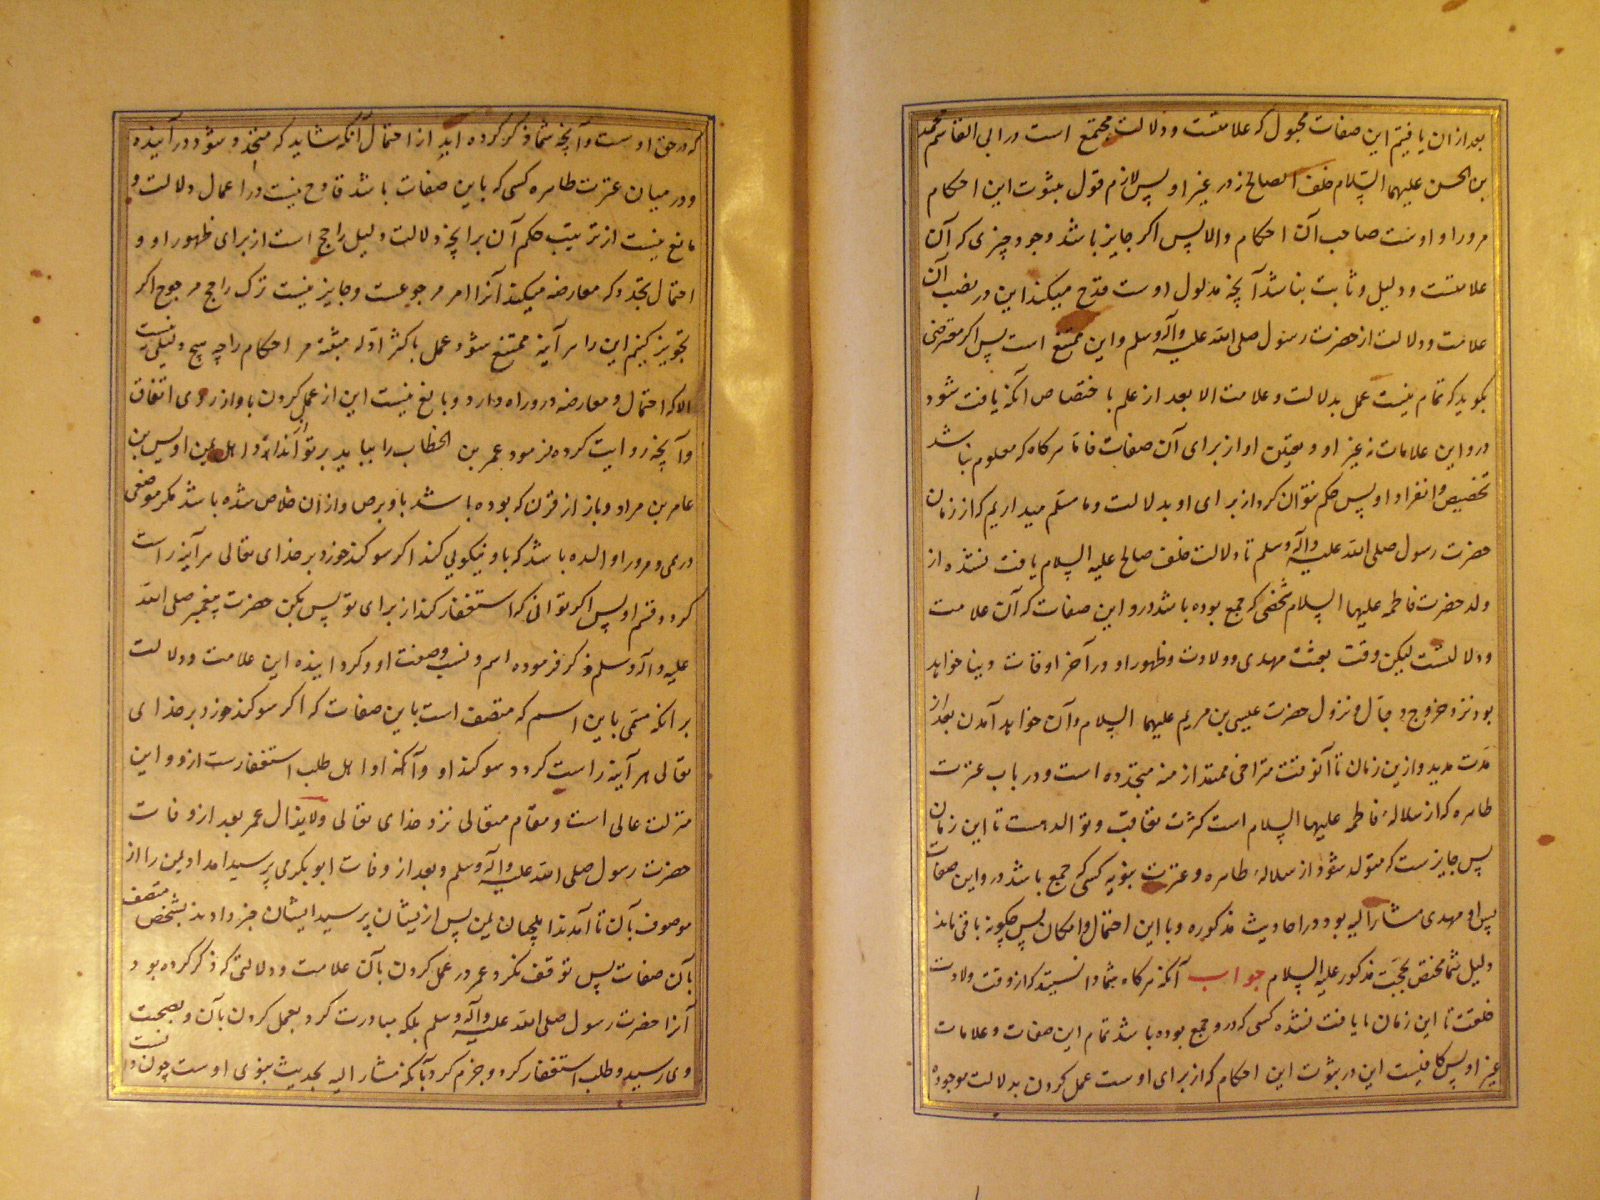 بعد ازان یافتیم این صفات مجبول که علامتست و دلالت مجتمع است در ابی القاسم محمد
بن الحسن علیهما السلام خلف الصالح نه در غیر او پس لازم قول بثبوت این احکام
مرورا و اوست صاحب آن احکام والا پس اگر جایز باشد وجود چیزی که آن
علامتست و دلیل و ثابت نباشد آنچه مدلول اوست قدح میکند این در نصب آن
علامت و دلالت از حضرت رسول صلی الله علیه وآله وسلم و این ممتنع است پس اگر معترضی
بگوید که تمام نیست عمل بدلالت و علامت الا بعد از علم باختصاص آنکه یافت شود
درو این علامات نه غیر او و تعیین او از برای آن صفات فاما هرگاه که معلوم نباشد
تخصیص و انفراد او پس حکم نتوان کرد از برای او بدلالت و ما مسلم میداریم که از زمان
حضرت رسول صلی الله علیه وآله وسلم تا ولادت خلف صالح علیه السلام یافت نشده از
ولد حضرت فاطمه علیها السلام شخصی که جمع بوده باشد درو این صفات که آن علامت
و دلالتست لیکن وقت بعثت مهدی و ولادت و ظهور او در آخر اوقات دنیا خواهد
بود نزد خروج دجال و نزول حضرت عیسی بن مریم علیهما السلام و آن خواهد آمدن بعد از
مدت مدید و ازین زمان تا آنوقت متراخی ممتد ازمنه متجدده است و در باب عترت
طاهره که از سلاله فاطمه علیها السلام است کثرت تعاقب و توالد هست تا این زمان
پس جایزست که متولد شود از سلاله طاهره و عترت نبویه کسی که جمع باشد درو این صفات
پس او مهدی مشار الیه بود در احادیث مذکوره و با این احتمال و امکان پس چگونه باقی ماند
دلیل شما مختص بحجت مذکور علیه السلام جواب آنکه هرگاه شما دانستید که از وقت ولادت
خلقت تا این زمان ما یافت نشده کسی که درو جمع بوده باشد تمام این صفات و علامات
غیر او پس کافیست این در ثبوت این احکام که از برای اوست عمل کردن بدلالت موجوده
که در حق اوست و آنچه شما ذکر کرده اید از احتمال آنکه شاید که متجدد شود در آینده
و در میان عترت طاهره کسی که باین صفات باشد قادح نیست در اعمال دلالت و
مانع نیست از ترتیب حکم آن بر آنچه دلالت دلیل راجح است از برای ظهور او و
احتمال تجدد که معارضه میکند آنرا امر مرجوعست و جایز نیست ترک راجح مرجوح اگر
تجویز کنیم این را هر آینه ممتنع شود عمل باکثر ادله مثبته مر احکام را چه هیچ دلیلی نیست
الا که احتمال و معارضه درو راه دارد و مانع نیست این از عمل کردن باو از روی اتفاق
و آنچه روایت کرده فرمود عمر بن الخطاب را بیاید بر تو با امداد اهل یمن اویس بن
عامر بن مراد و باز از قرن که بوده باشد باو برص و ازان خلاص شده باشد مگر موضعی
درمی و مرورا والده باشد که باو نیکویی کند اگر سوگند خورد بر خدای تعالی هر آینه راست
کرده قسم او پس اگر توانی که استغفار کند از برای تو پس بکن حضرت پیغمبر صلی الله
علیه وآله وسلم ذکر فرموده اسم و نسب و صفت او و گردانیده این علامت و دلالت
بر آنکه مسمی باین اسم که متصف است باین صفات که اگر سوگند خورد بر خدای
تعالی هر آینه راست کرده سوگند او و آنکه او اهل طلب استغفارست ازو و این
منزلت عالی است و مقام متعالی نزد خدای تعالی ولایزال عمر بعد از وفات
حضرت رسول صلی الله علیه وآله وسلم و بعد از وفات ابوبکر می پرسید امداد یمن را از
موصوف بآن تا آمدند ایلچیان یمن پس ازیشان پرسید ایشان خبر دادند بشخص متصف
بآن صفات پس توقف نکرد عمر در عمل کردن بآن علامت و دلالتی که ذکر کرده بود
آنرا حضرت رسول صلی الله علیه وآله وسلم بلکه مبادرت کرد بعمل کردن بآن و بصحبت
وی رسید و طلب استغفار کرد و جزم کرد بآنکه مشار الیه بحدیث نبوی اوست چون دانست